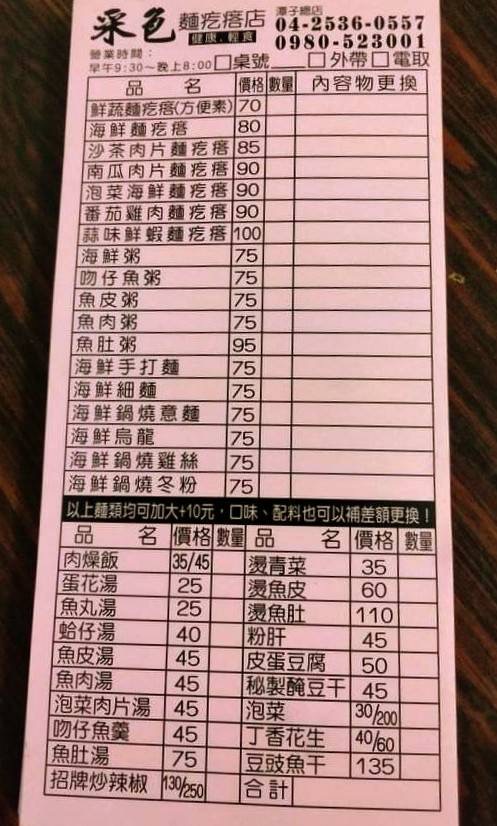 采色 麵疙瘩店 潭子總店
健康.輕食 04-2536-0557
0980-523001
營業時間：
早午9:30～晚上8:00 □桌號___ □外帶□電取
品 名 價格 數量 內容物更換
鮮蔬麵疙瘩(方便素) 70
海鮮麵疙瘩 80
沙茶肉片麵疙瘩 85
南瓜肉片麵疙瘩 90
泡菜海鮮麵疙瘩 90
番茄雞肉麵疙瘩 90
蒜味鮮蝦麵疙瘩 100
海鮮粥 75
吻仔魚粥 75
魚皮粥 75
魚肉粥 75
魚肚粥 95
海鮮手打麵 75
海鮮細麵 75
海鮮鍋燒意麵 75
海鮮烏龍 75
海鮮鍋燒雞絲 75
海鮮鍋燒冬粉 75
以上麵類均可加大+10元，口味、配料也可以補差額更換！
品 名 價格 數量 品 名 價格 數量
肉燥飯 35/45 燙青菜 35
蛋花湯 25 燙魚皮 60
魚丸湯 25 燙魚肚 110
蛤仔湯 40 粉肝 45
魚皮湯 45 皮蛋豆腐 50
魚肉湯 45 秘製醃豆干 45
泡菜肉片湯 45 泡菜 30/200
吻仔魚羹 45 丁香花生 40/60
魚肚湯 75 豆豉魚干 135
招牌炒辣椒 130/250 合計